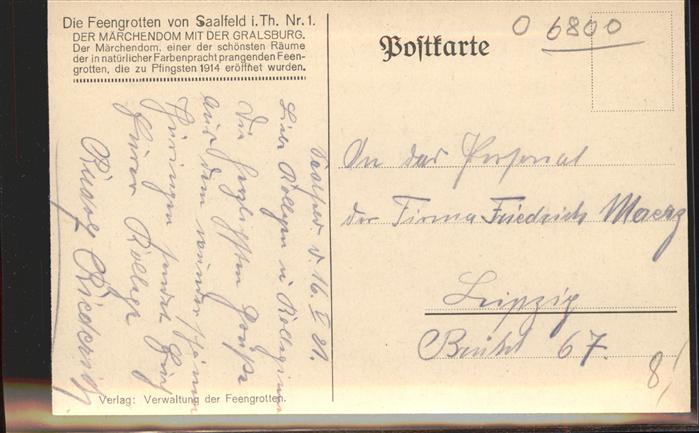 Die Feengrotten von Saalfeld i. Th. Nr. 1.
DER MÄRCHENDOM MIT DER GRALSBURG.
Der Märchendom, einer der schönsten Räume
der in natürlicher Farbenpracht prangenden Feen-
grotten, die zu Pfingsten 1914 eröffnet wurden.
Postkarte
O 6800
Liebe Kollegen u Kolleginnen
Die herzlichsten Grüße
aus dem wunderschönen
Thüringen sendet Euch
Euer Kollege
An das Personal
der Firma Friedrich Maerz
Leipzig
Brühl 67.
8
Verlag: Verwaltung der Feengrotten.